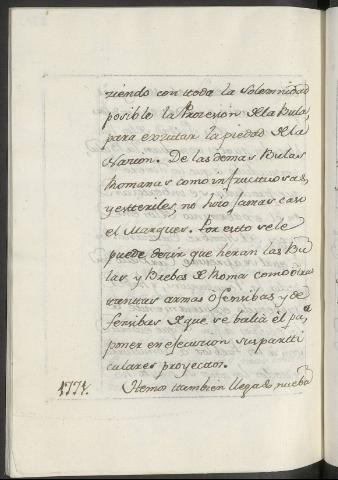 ziendo con ttoda la Solemnidad
posible la Prozesion de la Bula,
para exzitar la piedad de la
Nacion. De las demas Bulas
Romanas como infructuosas,
y esteriles, no hizo jamas caso
el Marques. Por esto se le
puede dezir que heran las Bu
las y Brebes de Roma como otras
tantas armas ofensibas y de
fensibas de que se balia el pa,ª
poner en esecucion sus partti
culares proyectos.
1774. Hemos ttambien llegado nueba